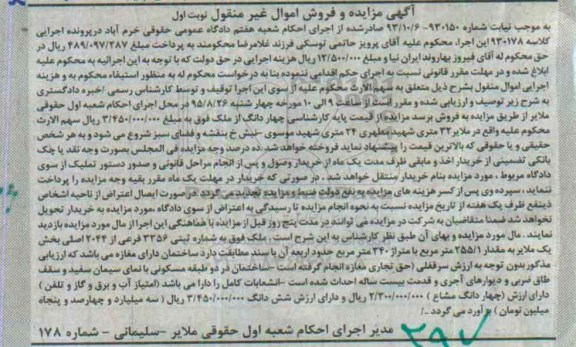 آگهی مزایده و فروش اموال غیر منقول نوبت اول
به موجب نیابت شماره ۹۳۰۱۵۰-۹۳/۱۰/۶ صادرشده از اجرای احکام شعبه هفتم دادگاه عمومی حقوقی خرم آباد درپرونده اجرایی
کلاسه ۹۳۰۱۷۸ این اجرا، محکوم علیه آقای پرویز حاتمی توسکی فرزند غلامرضا محکومند به پرداخت مبلغ ۴۸۹/۰۹۷/۳۸۷ ریال در
حق محکوم له آقای فیروز بهاروند ایران نیا و مبلغ ۱۲/۵۰۰/۰۰۰ ریال هزینه اجرایی در حق دولت که با توجه به این اجرائیه به محکوم علیه
ابلاغ شده و در مهلت مقرر قانونی نسبت به اجرای حکم اقدامی ننموده بنا به درخواست محکوم له به منظور استیفاء محکوم به و هزینه
اجرایی اموال منقول بشرح ذیل متعلق به سهم الارث محکوم علیه از سوی این اجرا توقیف و توسط کارشناس رسمی /خبره دادگستری
به شرح زیر توصیف و ارزیابی شده و مقرر است از ساعت ۹ الی ۱۰ مورخه چهار شنبه ۹۵/۸/۲۶ در محل اجرای احکام شعبه اول حقوقی
ملایر از طریق مزایده به فروش برسد مزایده از قیمت پایه کارشناسی چهار دانگ از ملک فوق به مبلغ ۳/۴۵۰/۰۰۰/۰۰۰ ریال سهم الارث
محکوم علیه واقع در ملایر ۳۲ متری شهید مطهری ۲۴ متری شهید موسوی -نبش خ بنفشه و فضای سبز شروع می شود و به هر شخص
حقیقی و یا حقوقی که بالاترین قیمت را پیشنهاد نماید فروخته خواهد شد. ده درصد وجه مزایده فی المجلس بصورت وجه نقد یا چک
بانکی تضمینی از خریدار اخذ و مابقی ظرف مدت یک ماه از خریدار وصول و پس از انجام مراحل قانونی و صدور دستور تملیک از سوی
دادگاه مربوط ، مورد مزایده بنام خریدار منتقل خواهد شد. در صورتی که خریدار در مهلت یک ماه مقرر بقیه وجه مزایده را پرداخت
ننماید ، سپرده وی پس از کسر هزینه های مزایده به نفع دولت ضبط و مزایده تجدید می گردد. در صورت ایصال اعتراض از ناحیه اشخاص
ذینفع ظرف یک هفته از تاریخ مزایده نسبت به نحوه انجام مزایده تا رسیدگی به اعتراض از سوی دادگاه ،مورد مزایده به خریدار تحویل
نخواهد شد ضمنا متقاضیان به شرکت در مزایده می توانند در مدت پنج روز قبل از مزایده با هماهنگی این اجرا از مال مورد مزایده بازدید
نمایند . مال مورد مزایده و بهای آن طبق نظر کارشناس به این شرح است . ملک فوق به شماره ثبتی ۳۳۵۶ فرعی از ۲۰۴۴ اصلی بخش
یک ملایر به مقدار ۲۵۵/۱ متر مربع با متراژ ۳۴۰ متر مربع حدود اربعه آن با سند مطابقت دارد ساختمان دارای مغازه می باشد که ارزیابی
مذکور بدون توجه به ارزش سرقفلی (حق تجاری مغازه انجام گرفته است -ساختمان در دو طبقه مسکونی با نمای سیمان سفید و سقف
طاق ضربی و دیوارهای آجری و قدمت بیست ساله احداث شده است -انشعابات کامل را دارا می باشد (امتیاز آب و برق و گاز و تلفن )
دارای ارزش (چهار دانگ مشاع ) ۲/۳۰۰/۰۰۰/۰۰۰ ریال و دارای ارزش شش دانگ ۳/۴۵۰/۰۰۰/۰۰۰ ریال ( سه میلیارد و چهارصد و پنجاه
میلیون تومان ) بر آورد می گردد ./.
مدیر اجرای احکام شعبه اول حقوقی ملایر -سلیمانی - شماره ۱۷۸